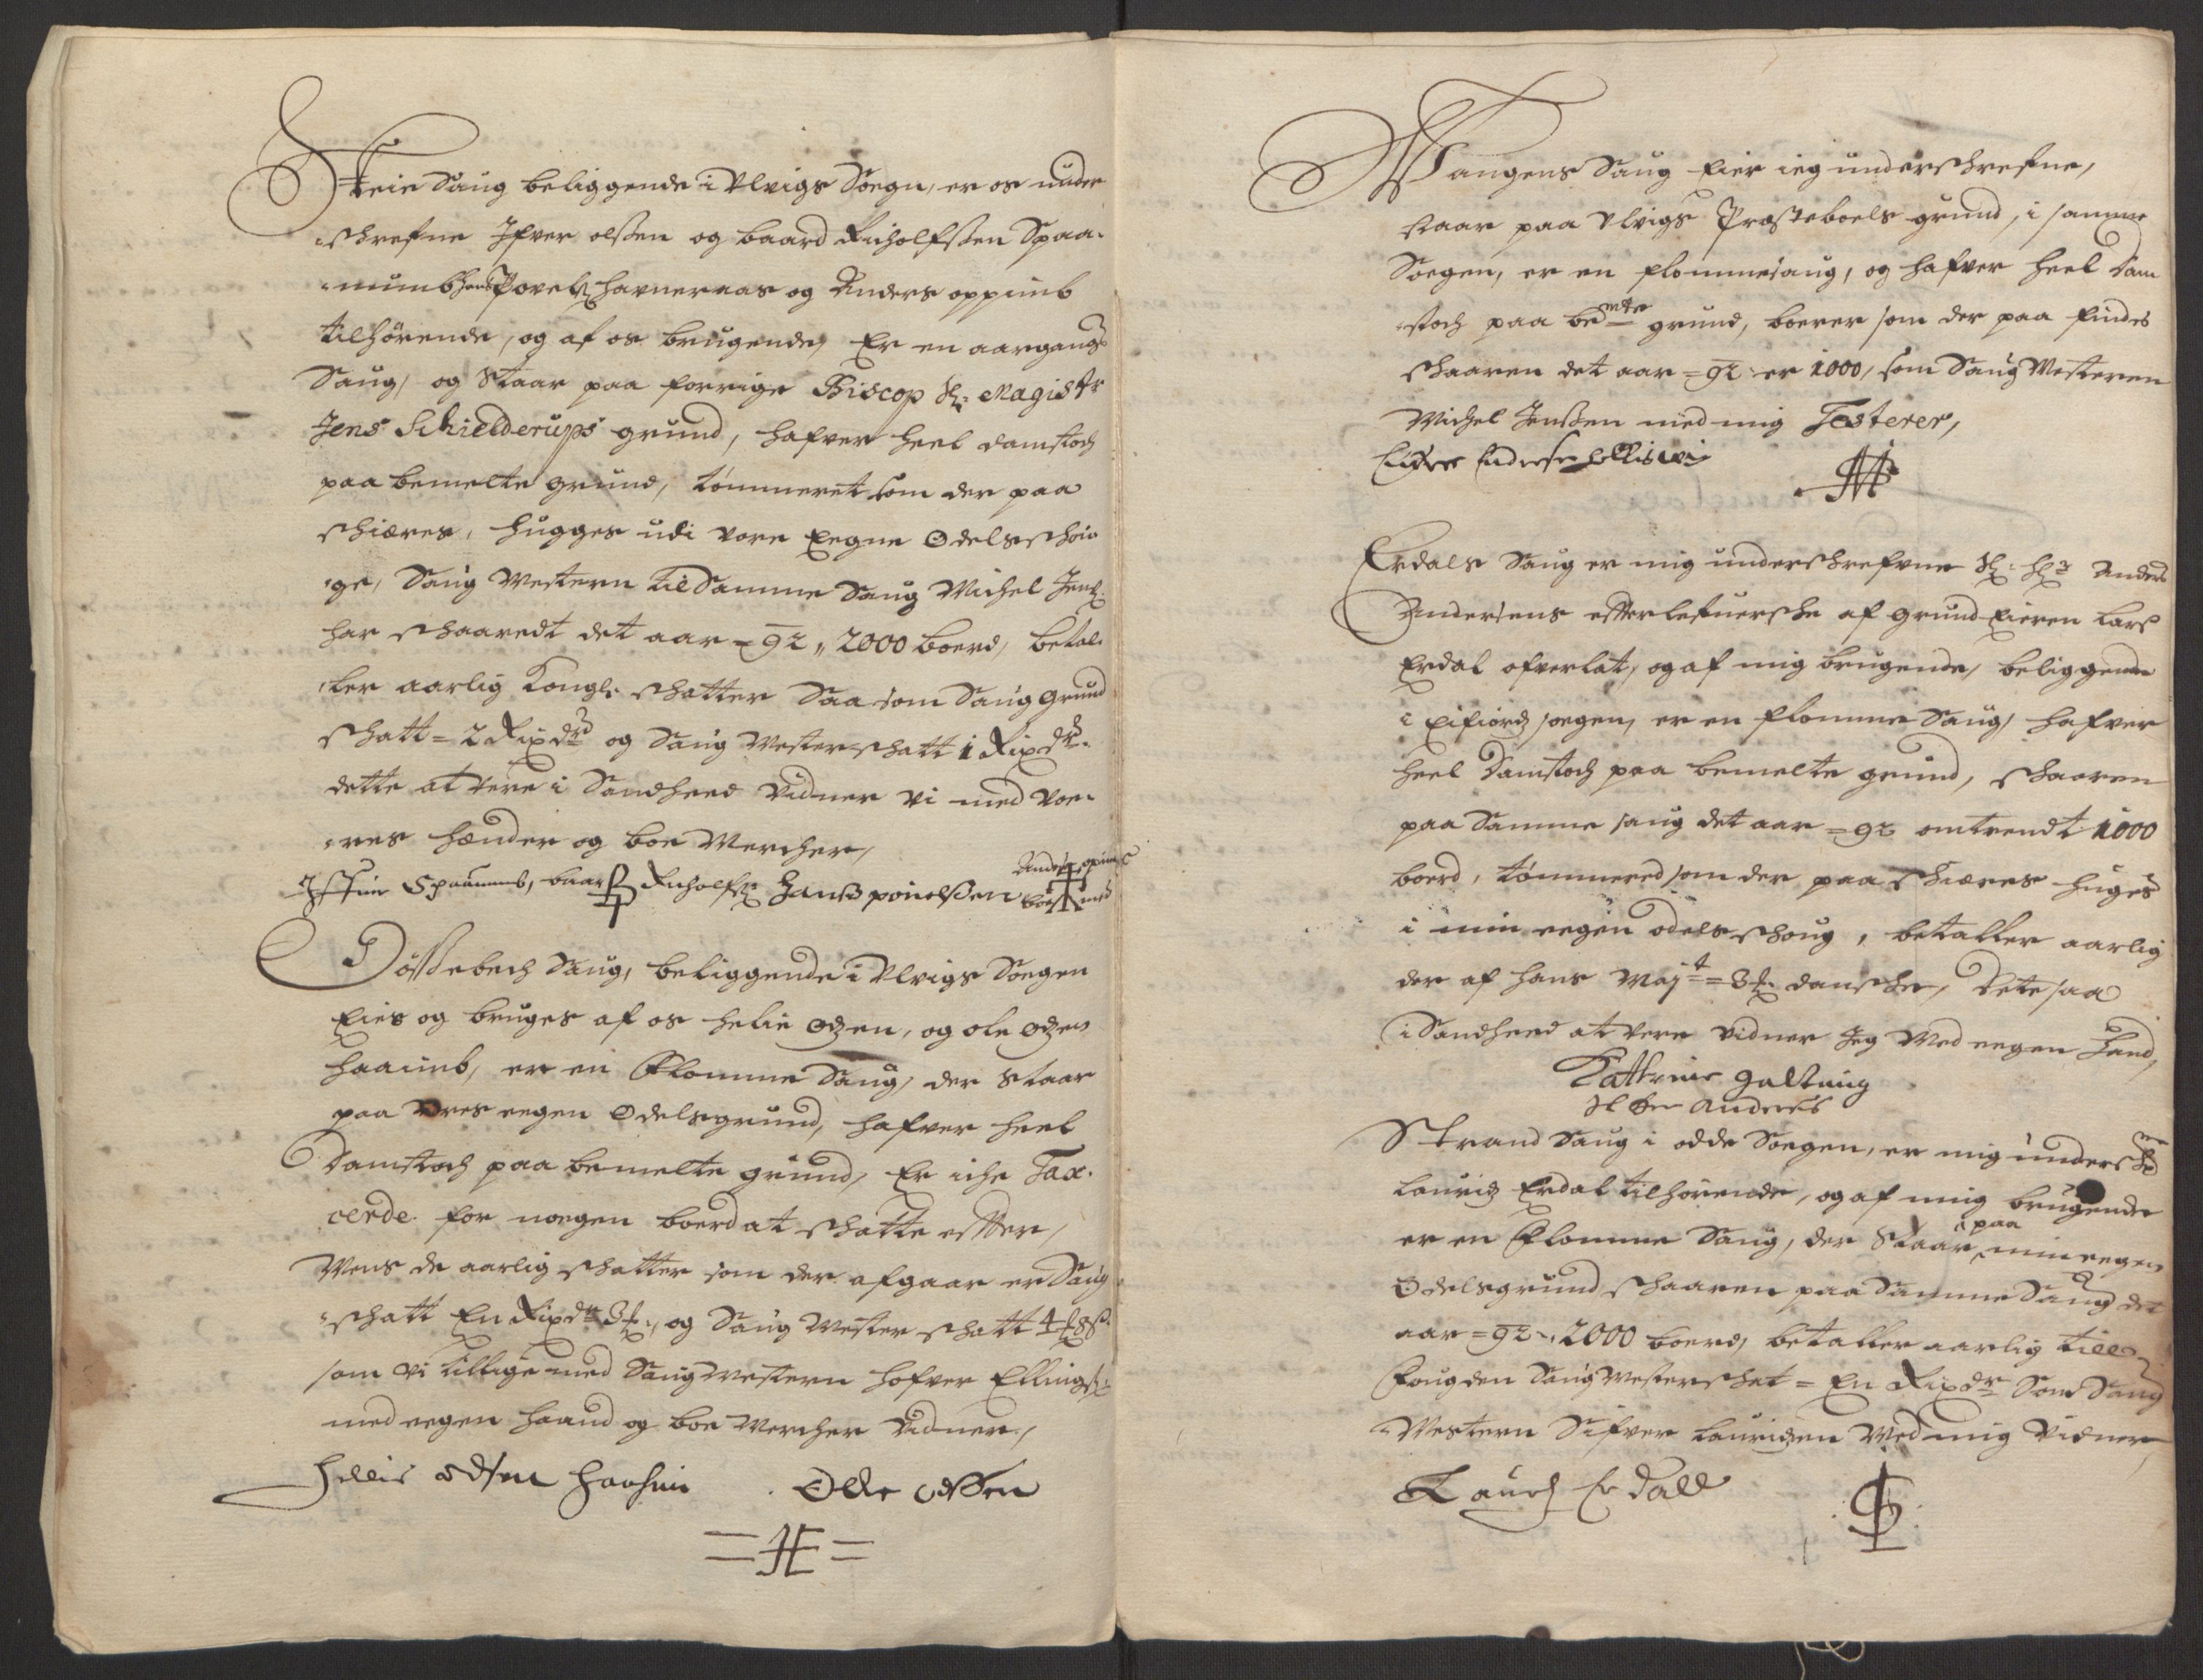 Steie Saug beliggende i Ulvigs Soegn, er os under
schrefne Jfver olsßen og baard Richolfsßen Spaa-
numb hans Povels havneraas og Anders oppimb
tilhörende, og af os brugende, Er en aargangs
Saug, og Staar paa forrige Biscop Sl: Magistr
Jens Schielderups grund, hafver heel damstoch
paa bemelte grund, tömmeret som der paa
schiæres, hugges udi vore Eegne Odelsschou
ge, Saug Mestern til Samme Saug Michel Jens:
har schaaredt det aar = 92 „ 2000 boerd, betal-
ler aarlig Kongl: schatter Saa som Saug grund
schatt = 2 Rixdr og Saug Mester schatt 1 Rixdr.
dette at vere i Sandheed vidner vi med voe-
res hænder og boe Mercher,
Jffuer Spaanumb, baard Richolfs: Hanß pouelsßen Anders opimb
boe merch
Dößebech Saug, beliggende i Ulvigs Soegen
Eies og bruges af os helie odzen, og ole odzen
haaimb, er en Flomme Saug, der Staar
paa vores eegen Odelsgrund, hafver heel
Damstoch paa bemelte grund, Er iche Tax-
cerde for noegen boerd at schatte effter,
Mens de aarlig schatter som der afgaar er Saug
schatt En Rixdr 3 , og Saug Mester schatt 4 8 ß.
som vi tillige med Saug Mestern hofver Ellings:
med eegen haand og boe Mercher vidner,
hellie odsen haaheim Olle odßen
= HE =
Vangens Saug Eier ieg underschrefne,
staar paa Ulvigs Præsteboels grund, i samme
Soegen, er en flommesaug, og hafver heel dam
stoch paa bemte grund, boerer som der paa findes
schaaren det aar = 92 er 1000, som Saug Mesteren
Michel Jensßen med mig Testerer,
Endresen
Erdals Saug er mig underschrefvne Sl: Hr Anders
Andersens effterlefuersche af grund Eieren Lars
Erdal ofverlat, og af mig brugende, beliggende
i Eifiordz soegen, er en flomme Saug, hafver
heel Damstoch paa bemelte grund, schaaren
paa Samme saug det aar = 92 omtrendt 1000
boerd, tömmered som der paa schiæres huges
i min eegen odels schoug, betaller aarlig
der af hans Majt = 3 dansche, Dete saa
i Sandheed at vere vidner Jeg Med eegen Hand,
Kattrine galtung
Sl Her Anderses
Strand Saug i odde Soegen, er mig undersch ne
Lauridz Erdal tilhörende, og af mig brugende
er en Flomme Saug, der Staar paa min eegen
Odelsgrund schaaren paa Samme Saug det
aar = 92 . 2000 boerd, betaller aarlig till
Fougden Saug Mester schat = En Rixdr Som Saug
Mestern Sifver Lauridzen Med mig Vidner
Laurs Erdall